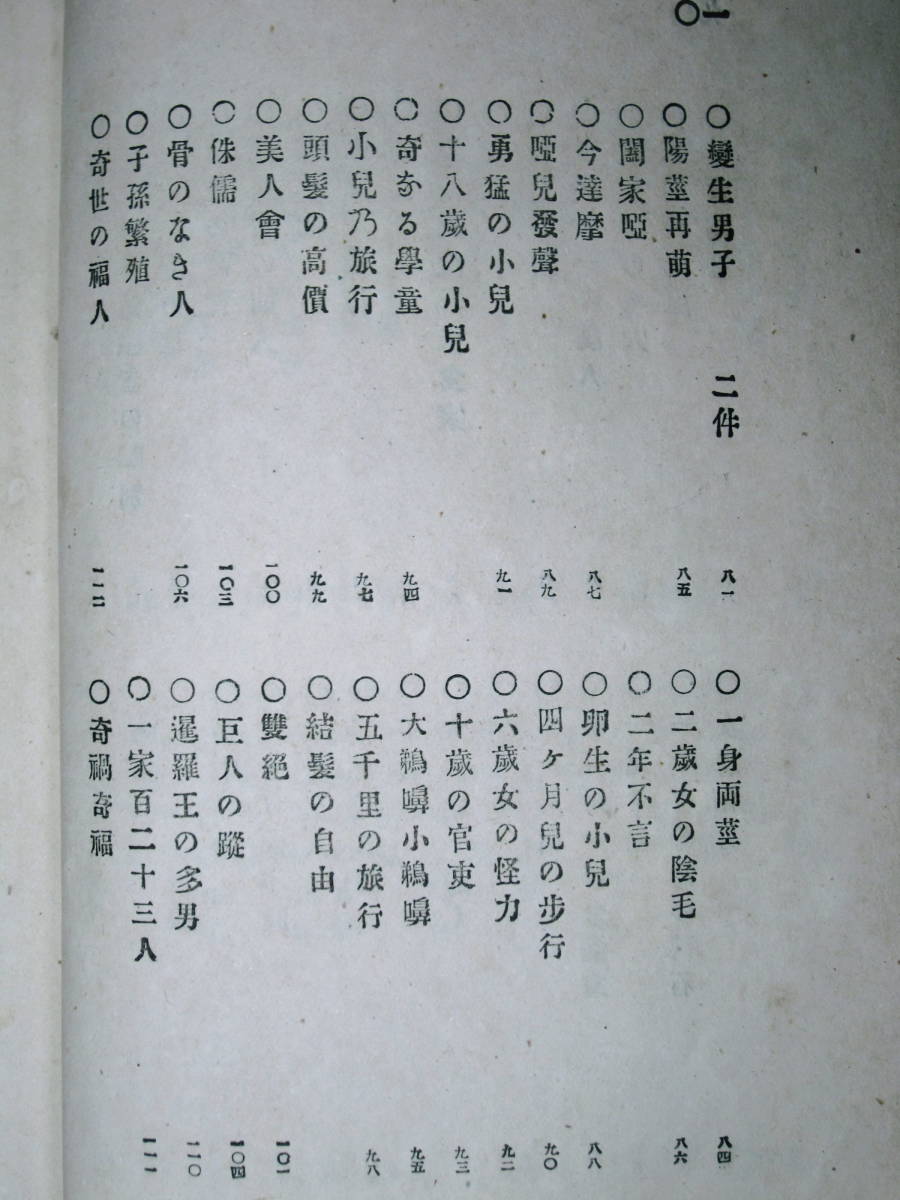 一〇
〇變生男子 二件 八一
〇陽莖再萌 八五
〇闔家啞
〇今達摩 八七
〇啞兒發聲 八九
〇勇猛の小兒 九一
〇十八歲の小兒
〇奇なる學童 九四
〇小兒乃旅行 九七
〇頭髮の高價 九九
〇美人會 一〇〇
〇侏儒 一〇三
〇骨のなき人 一〇六
〇子孫繁殖
〇奇世の福人 一一二
〇一身両莖 八四
〇二歲女の陰毛 八六
〇二年不言
〇卵生の小兒 八八
〇四ケ月兒の步行 九〇
〇六歲女の怪力 九二
〇十歲の官吏 九三
〇大鵜嚊小鵜嚊 九五
〇五千里の旅行 九八
〇結髮の自由
〇雙絕 一〇一
〇巨人の蹤 一〇四
〇暹羅王の多男 一一〇
〇一家百二十三人 一一一
〇奇禍奇福